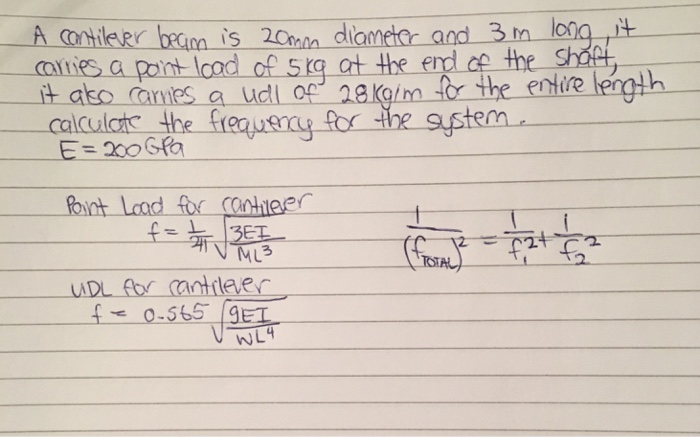 A cantilever beam is 20mm diameter and 3m long, it
carries a point load of 5kg at the end of the shaft,
it also carries a udl of 28kg/m for the entire length
calculate the frequency for the system.
E = 200GPa
Point Load for cantilever
f = 1/2π √(3EI/ML³)
1/(f_TOTAL)² = 1/f₁² + 1/f₂²
UDL for cantilever
f = 0.565 √(gEI/WL⁴)